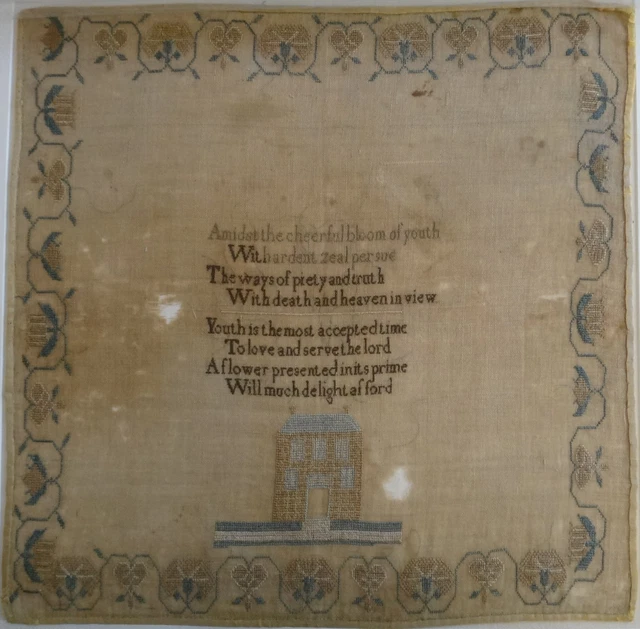 Amidst the cheerful bloom of youth
With ardent zeal persue
The ways of piety and truth
With death and heaven in view
Youth is the most accepted time
To love and serve the lord
A flower presented in its prime
Will much delight afford